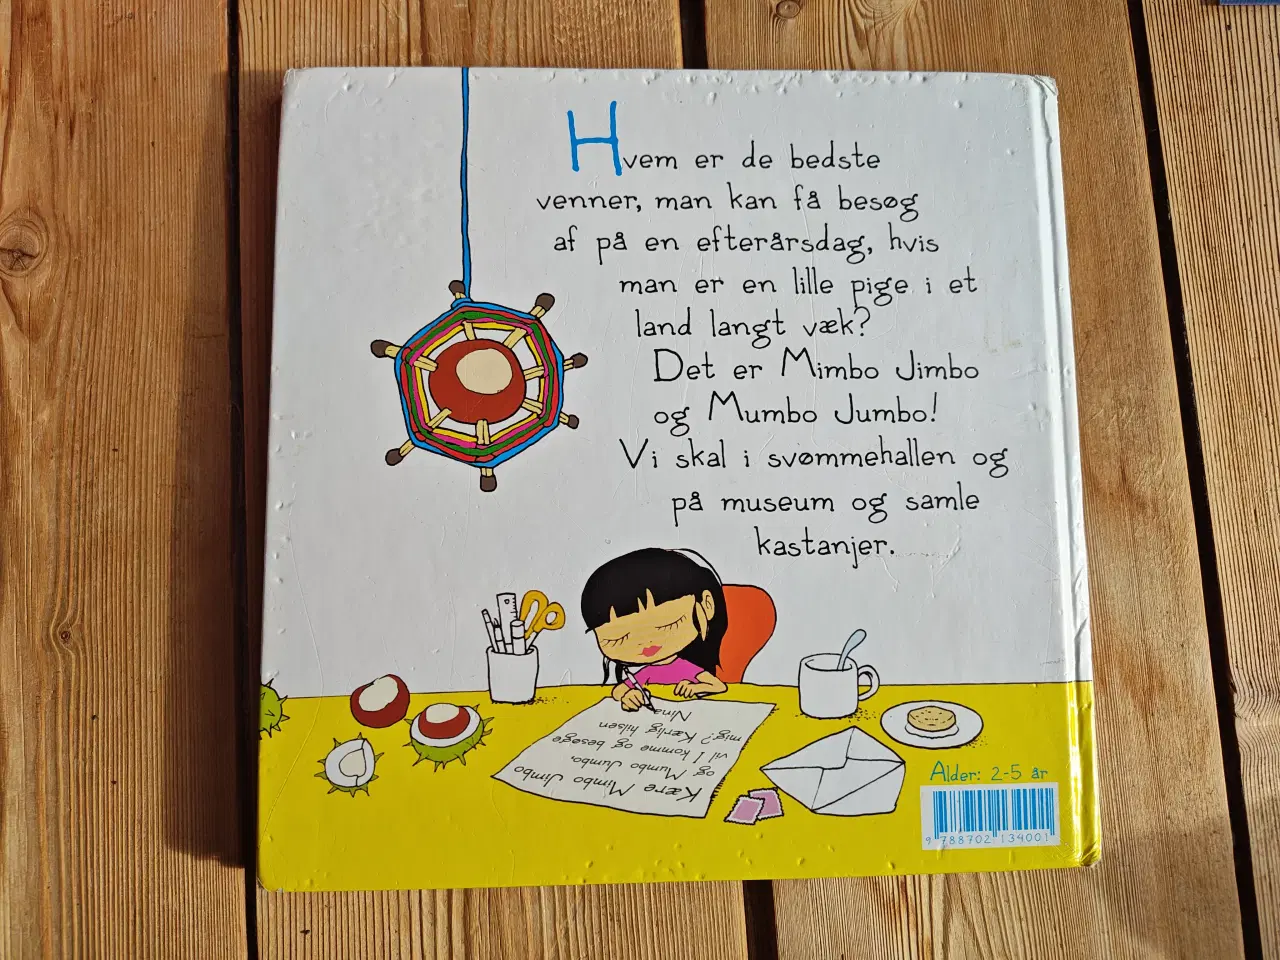 Hvem er de bedste
venner, man kan få besøg
af på en efterårsdag, hvis
man er en lille pige i et
land langt væk?
Det er Mimbo Jimbo
og Mumbo Jumbo!
Vi skal i svømmehallen og
på museum og samle
kastanjer.
Kære Mimbo Jimbo
og Mumbo Jumbo.
vil I komme og besøge
mig? Kærlig hilsen
Nina
Alder: 2-5 år
9 788702 134001